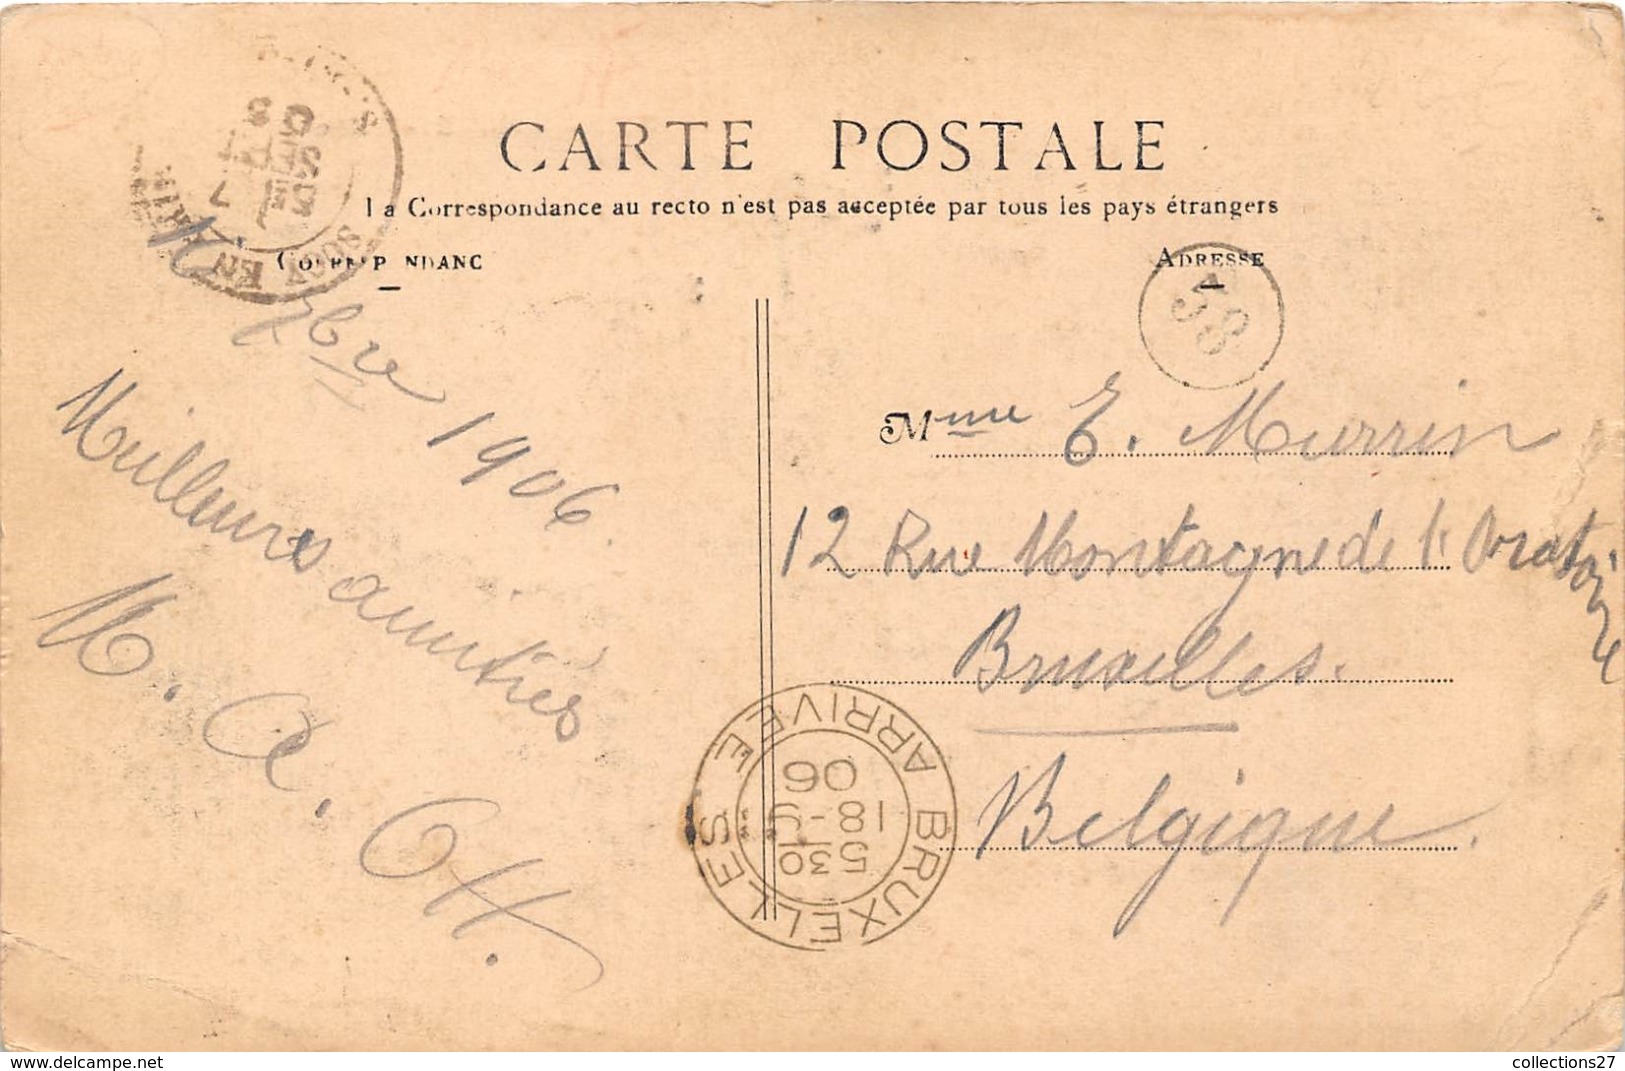 CARTE POSTALE
La Correspondance au recto n'est pas acceptée par tous les pays étrangers
ADRESSE
38
7bre 1906
Meilleures amitiés
M. A. H.
Mme E. Murrin
12 Rue Montagne de l'Oratoire
Bruxelles.
Belgique.
BRUXELLES ARRIVEE
530
18-9
06
www.delcampe.net
collections27